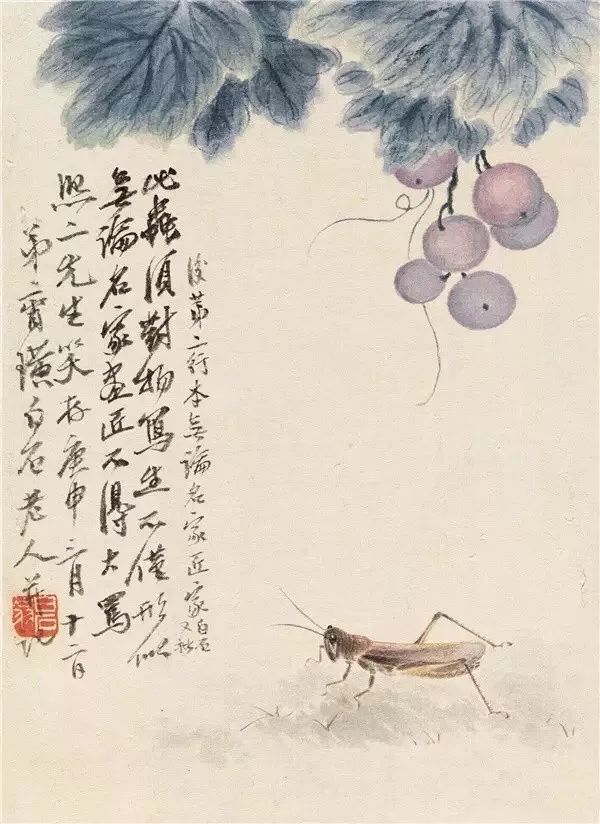 後第二行本無論名家匠家白石又批
此蟲須對物寫生不僅形似
無論名家畫匠不得大罵
熙二先生笑存庚申三月十二日
弟齊璜白石老人並記